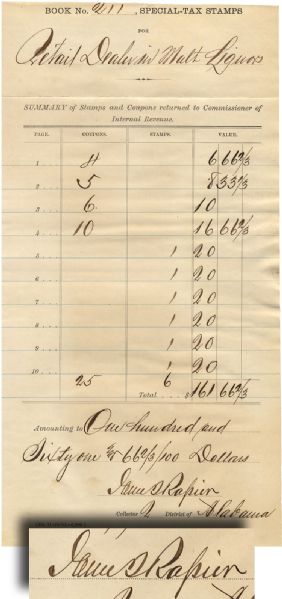 BOOK NO. 211, SPECIAL-TAX STAMPS
FOR
Retail Dealers in Malt Liquors
SUMMARY of Stamps and Coupons returned to Commissioner of
Internal Revenue.
PAGE. COUPONS. STAMPS. VALUE.
1 . . . 4 6 66 2/3
2 . . . 5 8 33 1/3
3 . . . 6 10
4 . . . 10 16 66 2/3
5 . . . 1 20
6 . . . 1 20
7 . . . 1 20
8 . . . 1 20
9 . . . 1 20
10 . . . 1 20
25 6
Total . . . $ 161 66 2/3
Amounting to One hundred and
Sixty one & 66 2/3/100 Dollars
James T Rapier
Collector 2 District of Alabama
James T Rapier